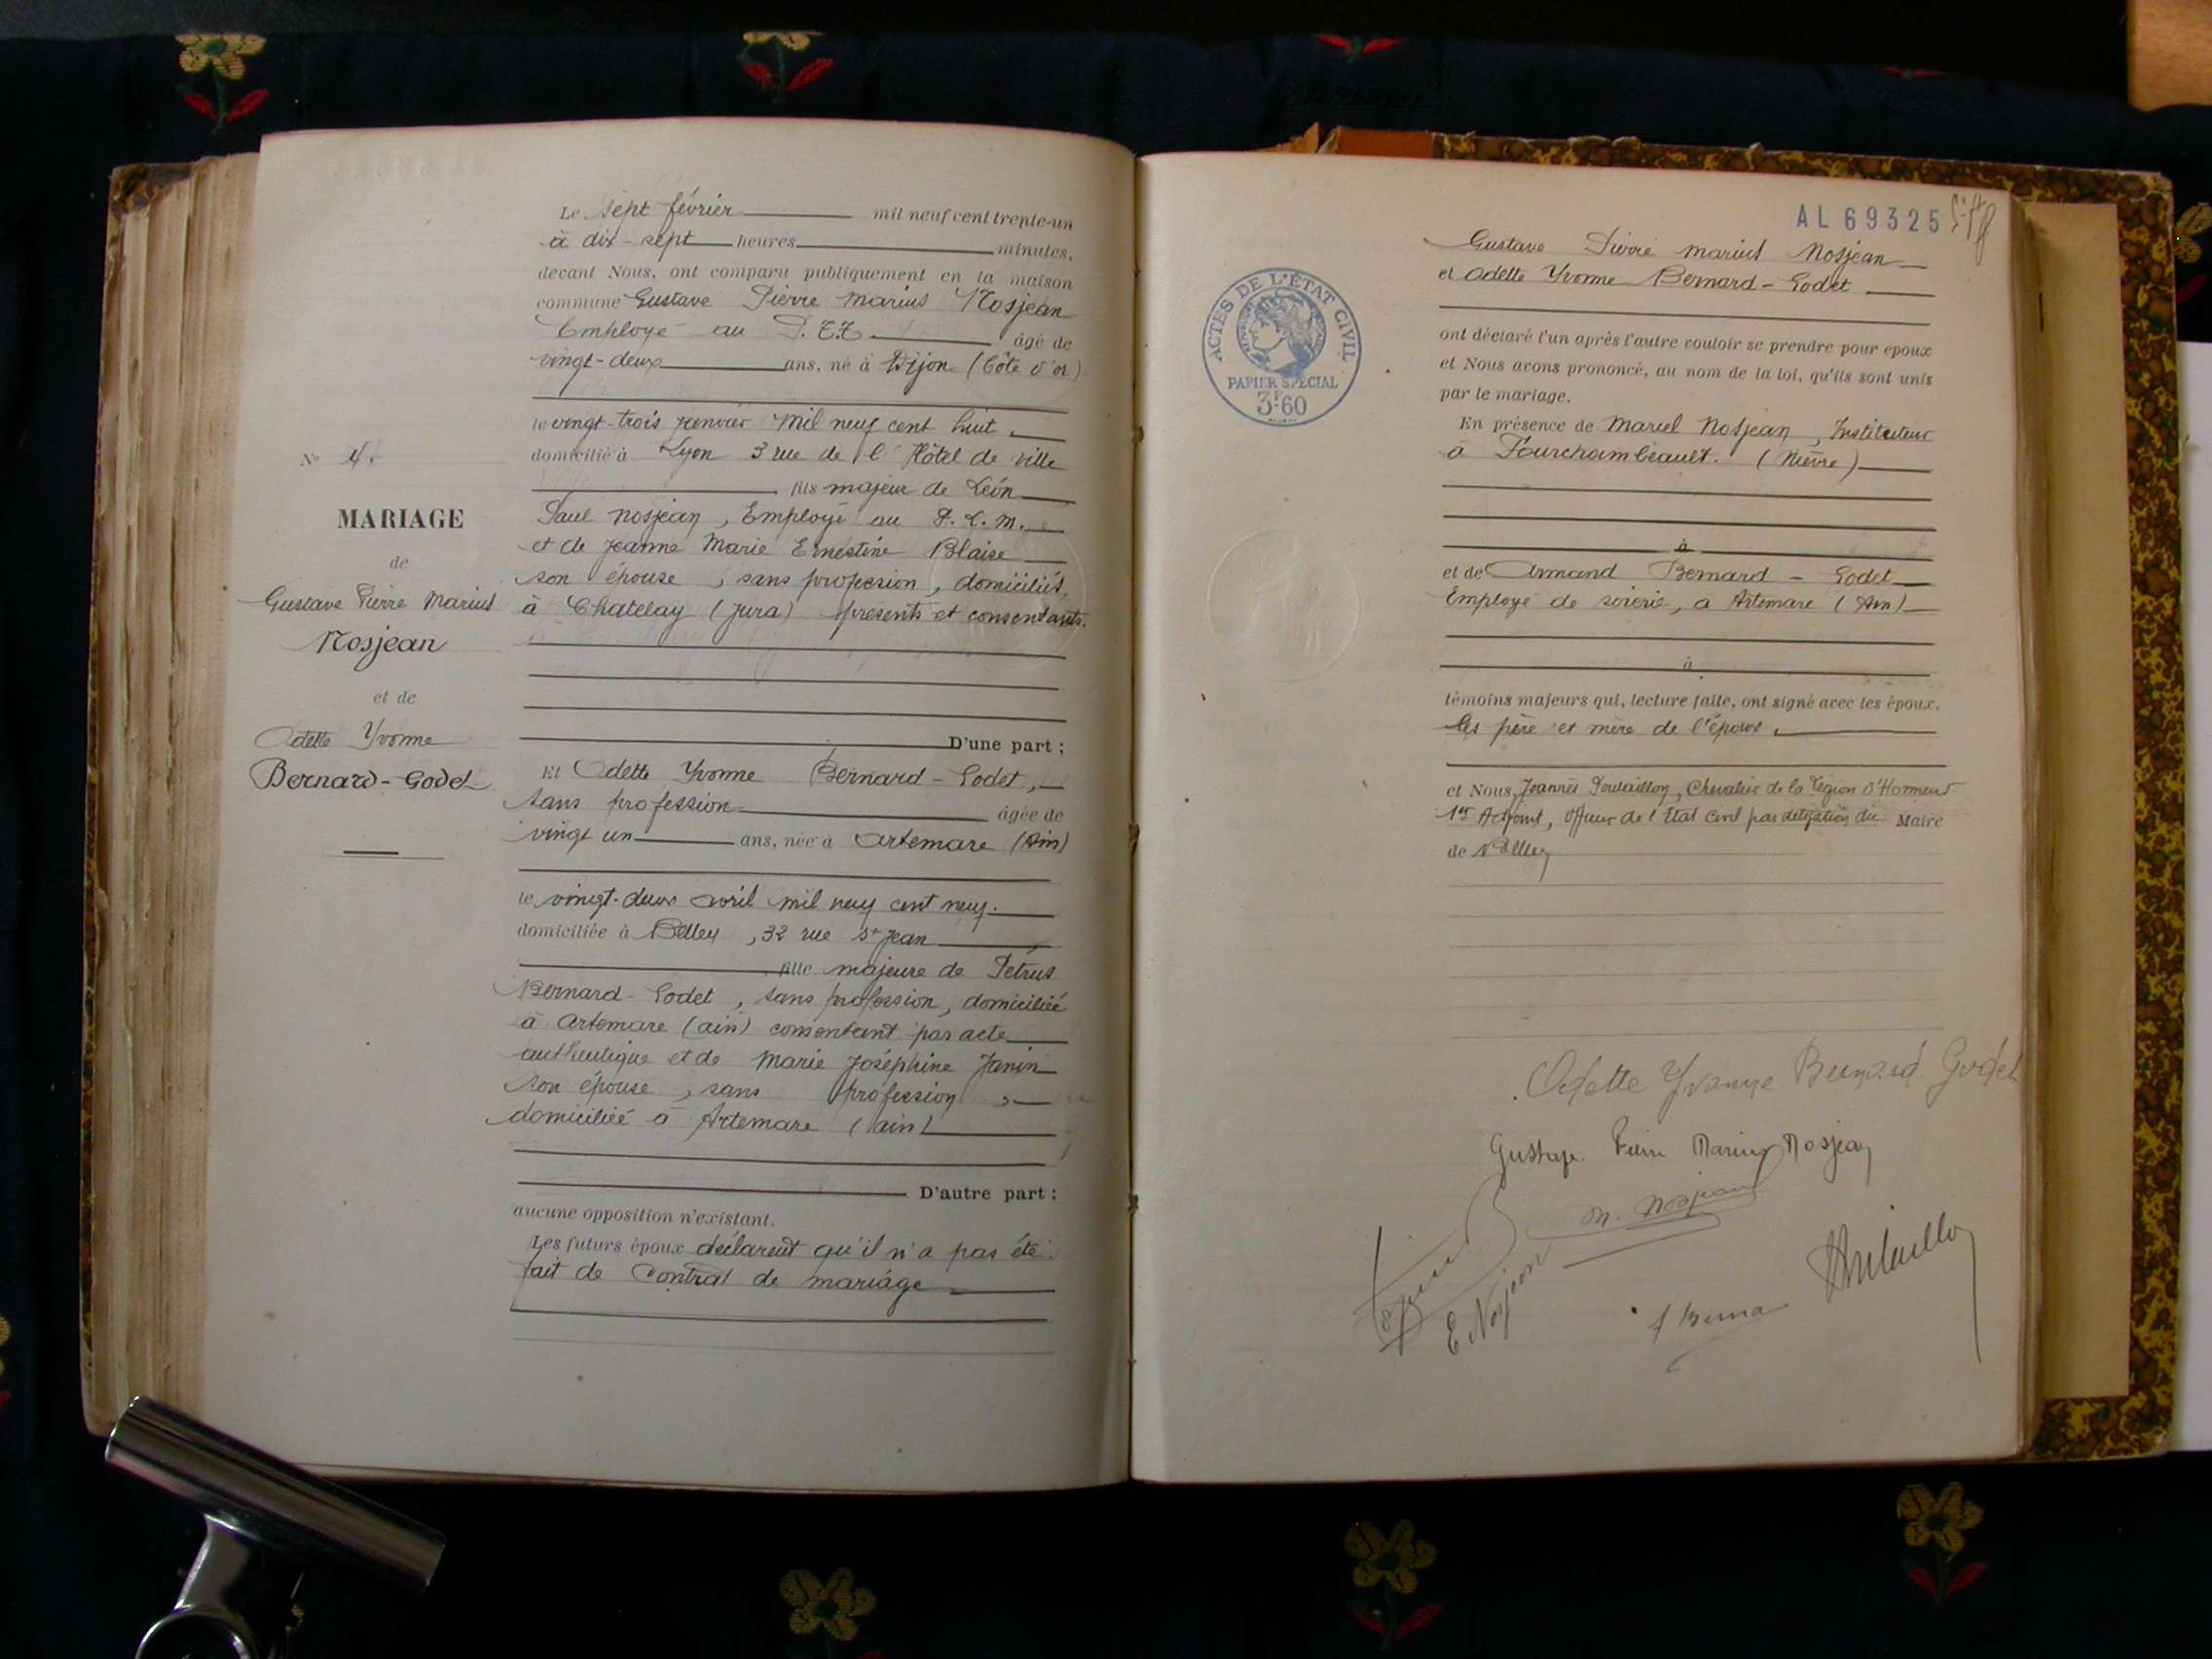 Le sept février mil neuf cent trente-un
à dix-sept heures minutes,
devant Nous, ont comparu publiquement en la maison
commune Gustave Pierre Marius Nosjean
Employé au P.T.T. âgé de
vingt-deux ans, né à Dijon (Côte d'or)
le vingt-trois janvier mil neuf cent huit
domicilié à Lyon 3 rue de l'Hôtel de ville
fils majeur de Léon
Paul Nosjean, Employé au P.L.M.
et de Jeanne Marie Ernestine Blaise
son épouse, sans profession, domiciliés
à Chatelay (Jura) présents et consentants.
D'une part ;
Et Odette Yvonne Bernard-Godet,
sans profession âgée de
vingt un ans, née à Artemare (Ain)
le vingt-deux avril mil neuf cent neuf.
domiciliée à Belley, 32 rue St Jean
fille majeure de Pétrus
Bernard-Godet, sans profession, domicilié
à Artemare (ain) consentant par acte
authentique et de Marie Joséphine Janin
son épouse, sans profession,
domiciliée à Artemare (ain)
D'autre part ;
aucune opposition n'existant.
Les futurs époux déclarent qu'il n'a pas été
fait de contrat de mariage
No 4.
MARIAGE
de
Gustave Pierre Marius
Nosjean
et de
Odette Yvonne
Bernard-Godet
AL 69325
ACTES DE L'ÉTAT CIVIL
PAPIER SPÉCIAL
3F60
Gustave Pierre Marius Nosjean
et Odette Yvonne Bernard-Godet
ont déclaré l'un après l'autre vouloir se prendre pour époux
et Nous avons prononcé, au nom de la loi, qu'ils sont unis
par le mariage.
En présence de Marcel Nosjean, Instituteur
à Fourchambault. (Nièvre)
à
et de Armand Bernard-Godet
Employé de soierie, à Artemare (Ain)
à
témoins majeurs qui, lecture faite, ont signé avec les époux,
les père et mère de l'époux.
et Nous, Joannès , Chevalier de la Légion d'Honneur
1er Adjoint, officier de l'Etat Civil par délégation du Maire
de Belley
Odette Yvonne Bernard Godet
Gustave Pierre Marius Nosjean
M. Nosjean
E Nosjean